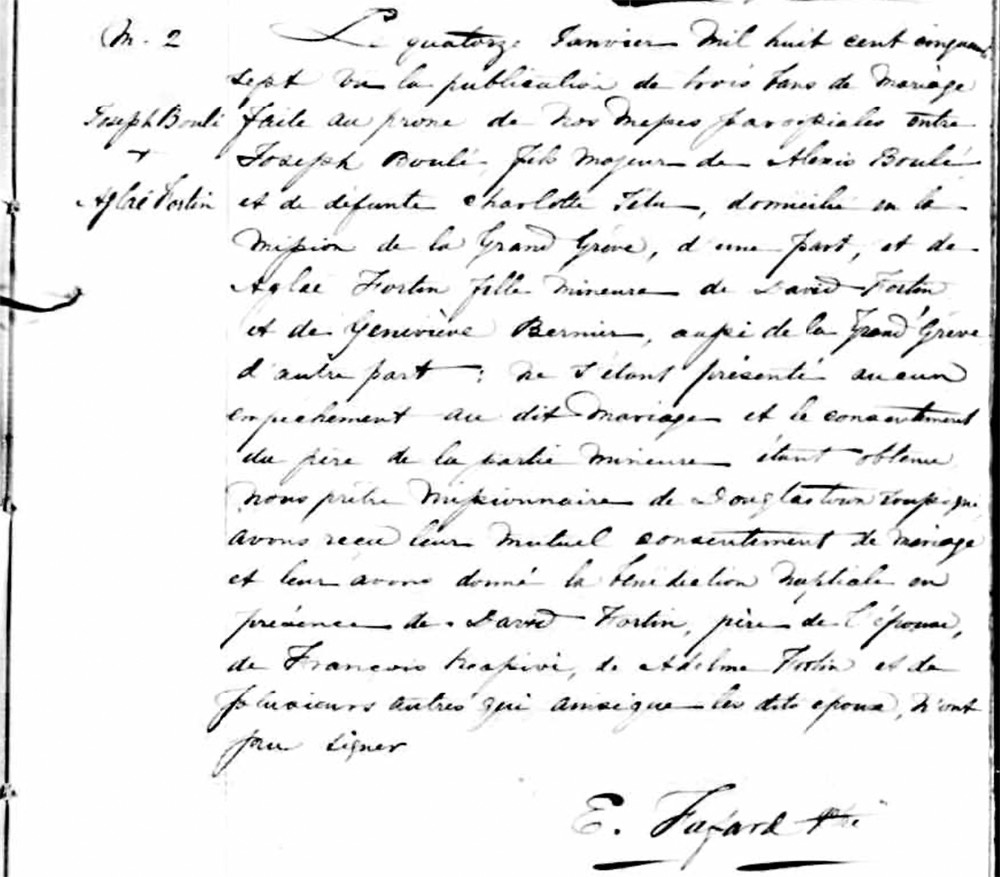 M. 2
Joseph Boulé
+
Aglaé Fortin
Le quatorze Janvier mil huit cent cinquante
sept vu la publication de trois bans de mariage
faite au prone de nos Messes paroissiales entre
Joseph Boulé, fils majeur de Alexis Boulé
et de défunte Charlotte Tetu, domicilié en la
Mission de la Grand Grève, d'une part, et de
Aglaé Fortin fille mineure de David Fortin
et de Geneviève Bernier, aussi de la Grand'Grève
d'autre part ; ne s'étant présenté aucun
empechement au dit mariage et le consentement
du père de la partie mineure étant obtenu
nous prêtre Missionnaire de Douglastown soussigné,
avons reçu leur mutuel consentement de mariage
et leur avons donné la bénédiction nuptiale en
présence de David Fortin, père de l'épouse,
de François de Adelme Fortin et de
plusieurs autres qui ainsi que les dits époux, n'ont
pu signer
E. Fafard Ptre